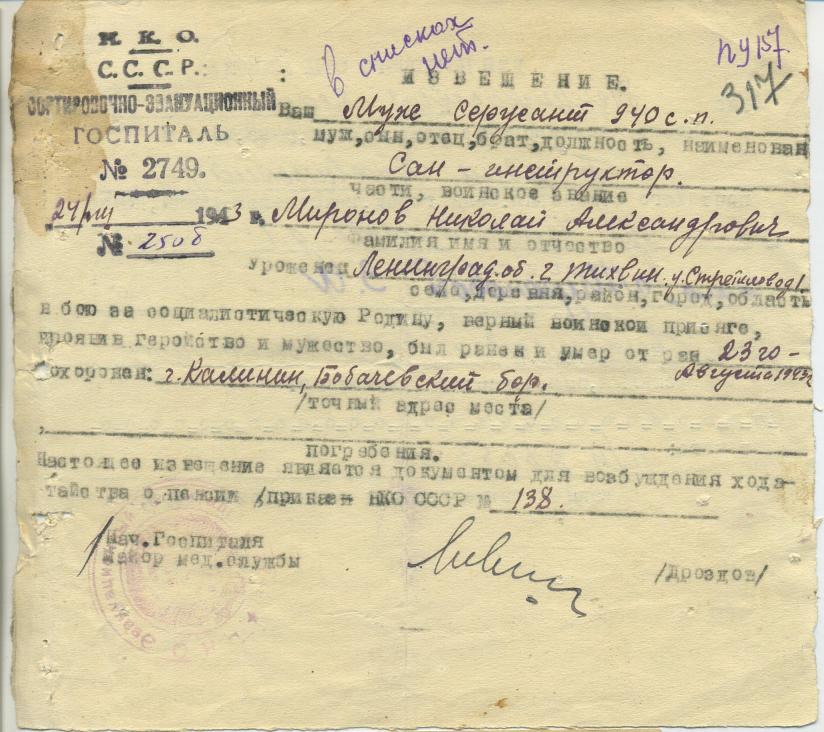 Н. К. О.
С. С. С. Р.
СОРТИРОВОЧНО-ЭВАКУАЦИОННЫЙ
ГОСПИТАЛЬ
№ 2749.
24/VIII 1943 г.
№ 2506
в списках
нет.
317
ИЗВЕЩЕНИЕ.
Ваш Муж Сержант 940 с.п.
муж, сын, отец, брат, должность, наименован
Сан - инструктор.
части, воинское звание
Миронов Николай Александрович
фамилия имя и отчество
Уроженец Ленинград. об. г. Тихвин
село, деревня, район, город, область
в бою за социалистическую Родину, верный воинской присяге,
проявив геройство и мужество, был ранен и умер от ран 23го -
Августа 1943г
Похоронен: г. Калинин, Бобачевский бор.
/точный адрес места/
погребения.
Настоящее извещение является документом для возбуждения хода-
тайства о пенсии /приказ НКО СССР № 138.
Нач. Госпиталя
Майор мед. службы /Дроздов/